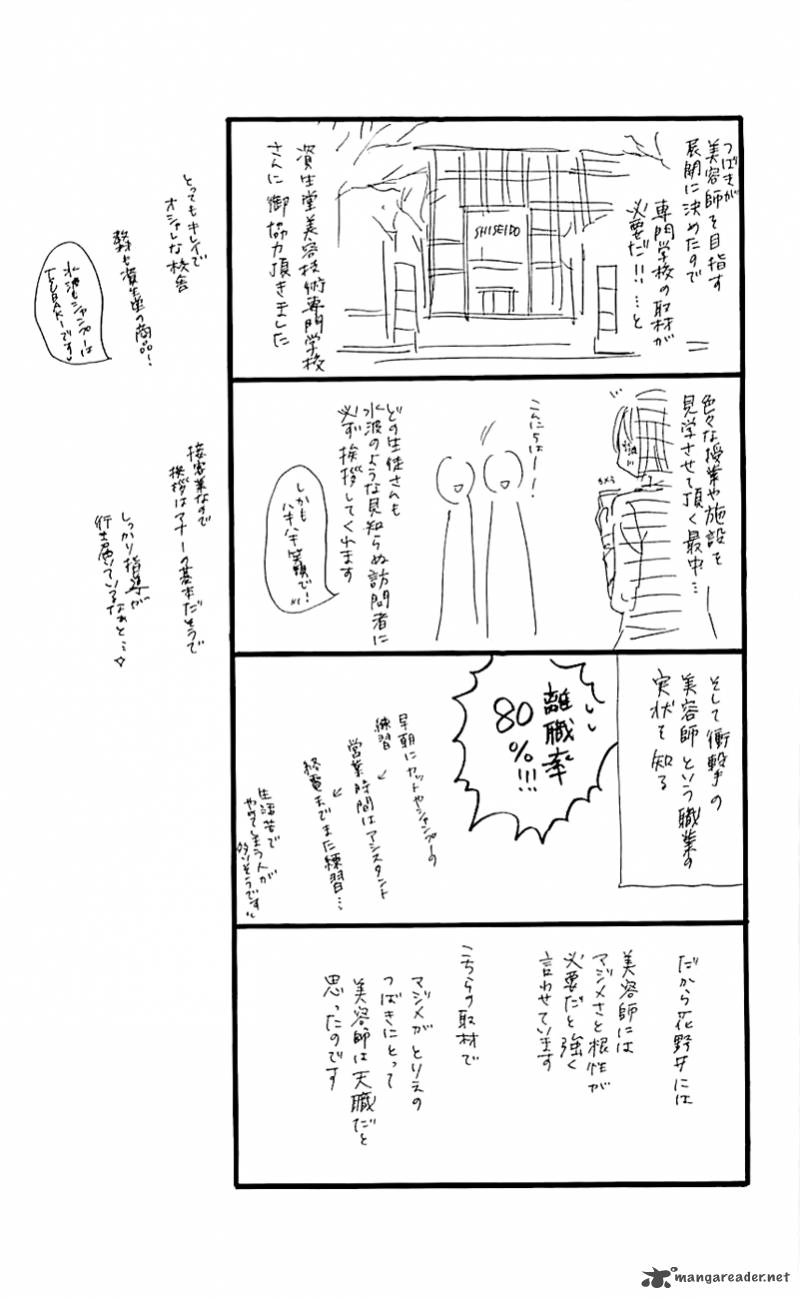 つばきが
美容師を目指す
展開に決めたので
専門学校の取材が
必要だ!!…と
SHISEIDO
資生堂美容技術専門学校
さんに御協力頂きました
とってもキレイで
オシャレな校舎
資生堂の商品!
水波もシャンプーは
TSUBAKIです
色々な授業や施設を
見学させて頂く最中…
こんにちはー!!
どの生徒さんも
水波のような見知らぬ訪問者に
必ず挨拶してくれます
しかも
ハキハキ笑顔で!
接客業なので
挨拶はマナーの基本だそうで
しっかり指導が
行き届いているなぁと…
そして衝撃の
美容師という職業の
実状を知る
離職率
80
%!!!
早朝にカットやシャンプーの
練習
↓
営業時間はアシスタント
↓
終電までまた練習…
生活苦で
やめてしまう人が
多いそうです
だから花野井には
美容師には
マジメさと根性が
必要だと強く
言わせています
こちらの取材で
マジメがとりえの
つばきにとって
美容師は天職だと
思ったのです
mangareader.net